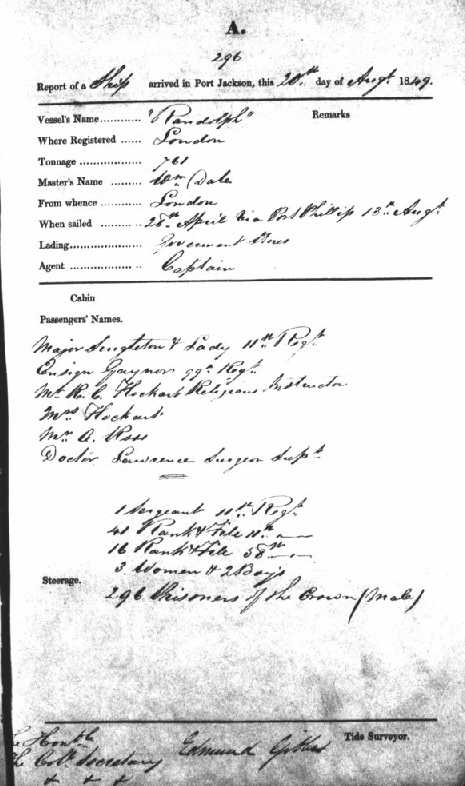 A.
296
Report of a Ship arrived in Port Jackson, this 20th day of Augt. 1849.
Vessel's Name ............ "Randolph" Remarks
Where Registered ...... London
Tonnage .................. 761
Master's Name ......... Wm Dale
From whence ............ London
When sailed ............ 28th April Via Port Phillip 18th Augt
Lading..................... Government
Agent ..................... Captain
Cabin
Passengers' Names.
Major Singleton & Lady 11th Regt
Ensign Gaynor 99th Regt
Mr R. C. Hockart Religious Instructor
Mrs Hockart
Mr A. Ross
Doctor Lawrence Surgeon Supt
1 Sergeant 11th Regt
41 Rank & File 11th
16 Rank & File 58th
3 Women & 2 Boys
Steerage.
296 Prisoners of the Crown (Male)
Tide Surveyor.
Honble
The Col. Secretary Edmund